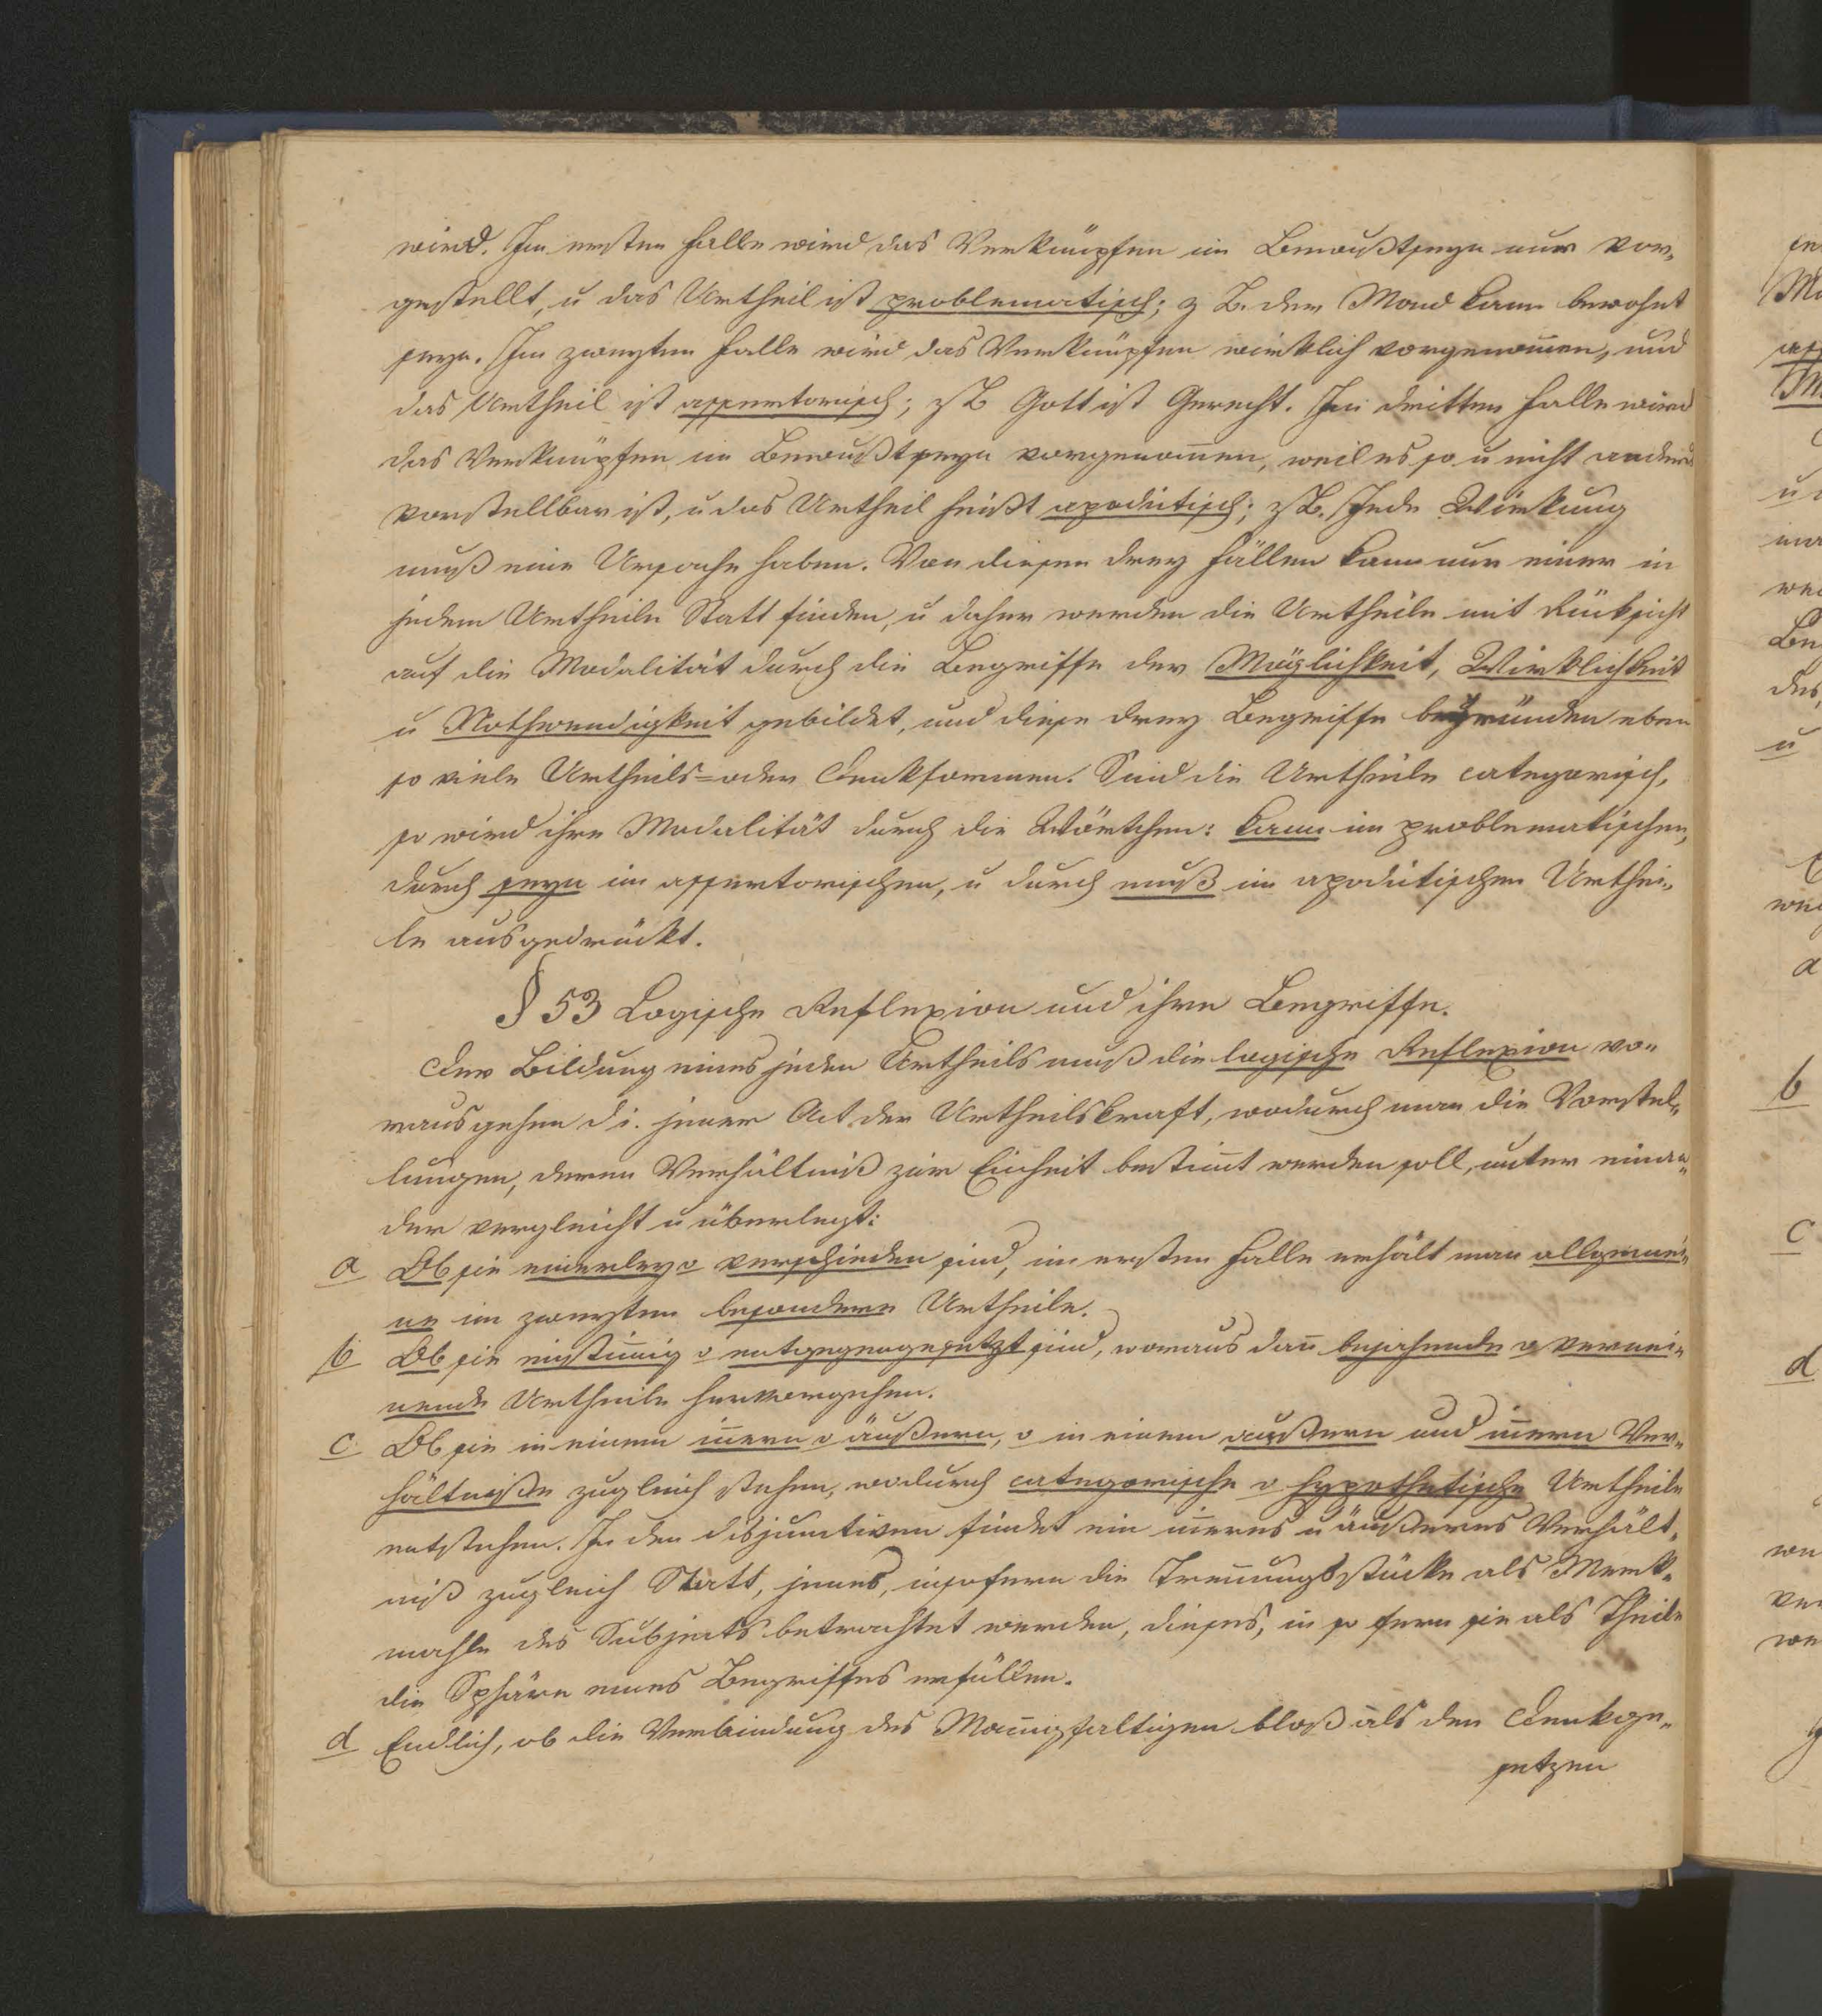 wird. Im ersten Falle wird das Verknüpfen im Bewußtseyn nur vor-
gestellt, u das Urtheil ist problematisch; z B. der Mond kann bewohnt
seyn. Im zweyten Falle wird das Verknüpfen wirklich vorgenom̄en, und
das Urtheil ist assertorisch; z B Gott ist Gerecht. Im dritten Falle wird
das Verknüpfen im Bewußtseyn vorgenom̄en, weil es so u nicht anders
vorstellbar ist, u das Urtheil heißt apodictisch; z B. Jede Wirkung
muß eine Ursache haben. Von diesen drey Fällen kann nur einer in
jedem Urtheile Statt finden, u daher werden die Urtheile mit Rücksicht
auf die Modalität durch die Begriffe der Möglichkeit, Wirklichkeit
u Nothwendigkeit gebildet, und diese drey Begriffe begründen eben
so viele Urtheils= oder Denkformen. Sind die Urtheile categorisch,
so wird ihre Modalität durch die Wörtchen: kann im problematischen,
durch seyn im assertorischen, u durch muß im apodictischen Urthei-
le ausgedrückt.
§ 53 Logische Reflexion und ihre Begriffe.
Der Bildung eines jeden Urtheils muß die logische Reflexion vo-
rausgehen d i. jener Act der Urtheilskraft, wodurch man die Vorstel-
lungen, deren Verhältniß zur Einheit bestim̄t werden soll, unter einan-
der vergleicht u überlegt:
a Ob sie einerley o verschieden sind, im ersten Falle erhält man allgemei-
ne im zweyten besondere Urtheile.
b Ob sie einstim̄ig o entgegengesetzt sind, woraus dan̄ bejahende o vernei-
nende Urtheile hervorgehen.
c Ob sie in einem in̄ern o äußern, o in einem außern und in̄ern Ver-
hältniße zugleich stehen, wodurch categorische o hypothetische Urtheile
entstehen. In den disjunctiven findet ein in̄eres u äußeres Verhält-
niß zugleich Statt, jenes, insofern die Tren̄ungsstücke als Merk-
mahle des Subjects betrachtet werden, dieses, in so fern sie als Theile
die Sphäre eines Begriffes erfüllen.
d Endlich, ob die Verbindung des Man̄igfaltigen bloß als den Denkge-
setzen